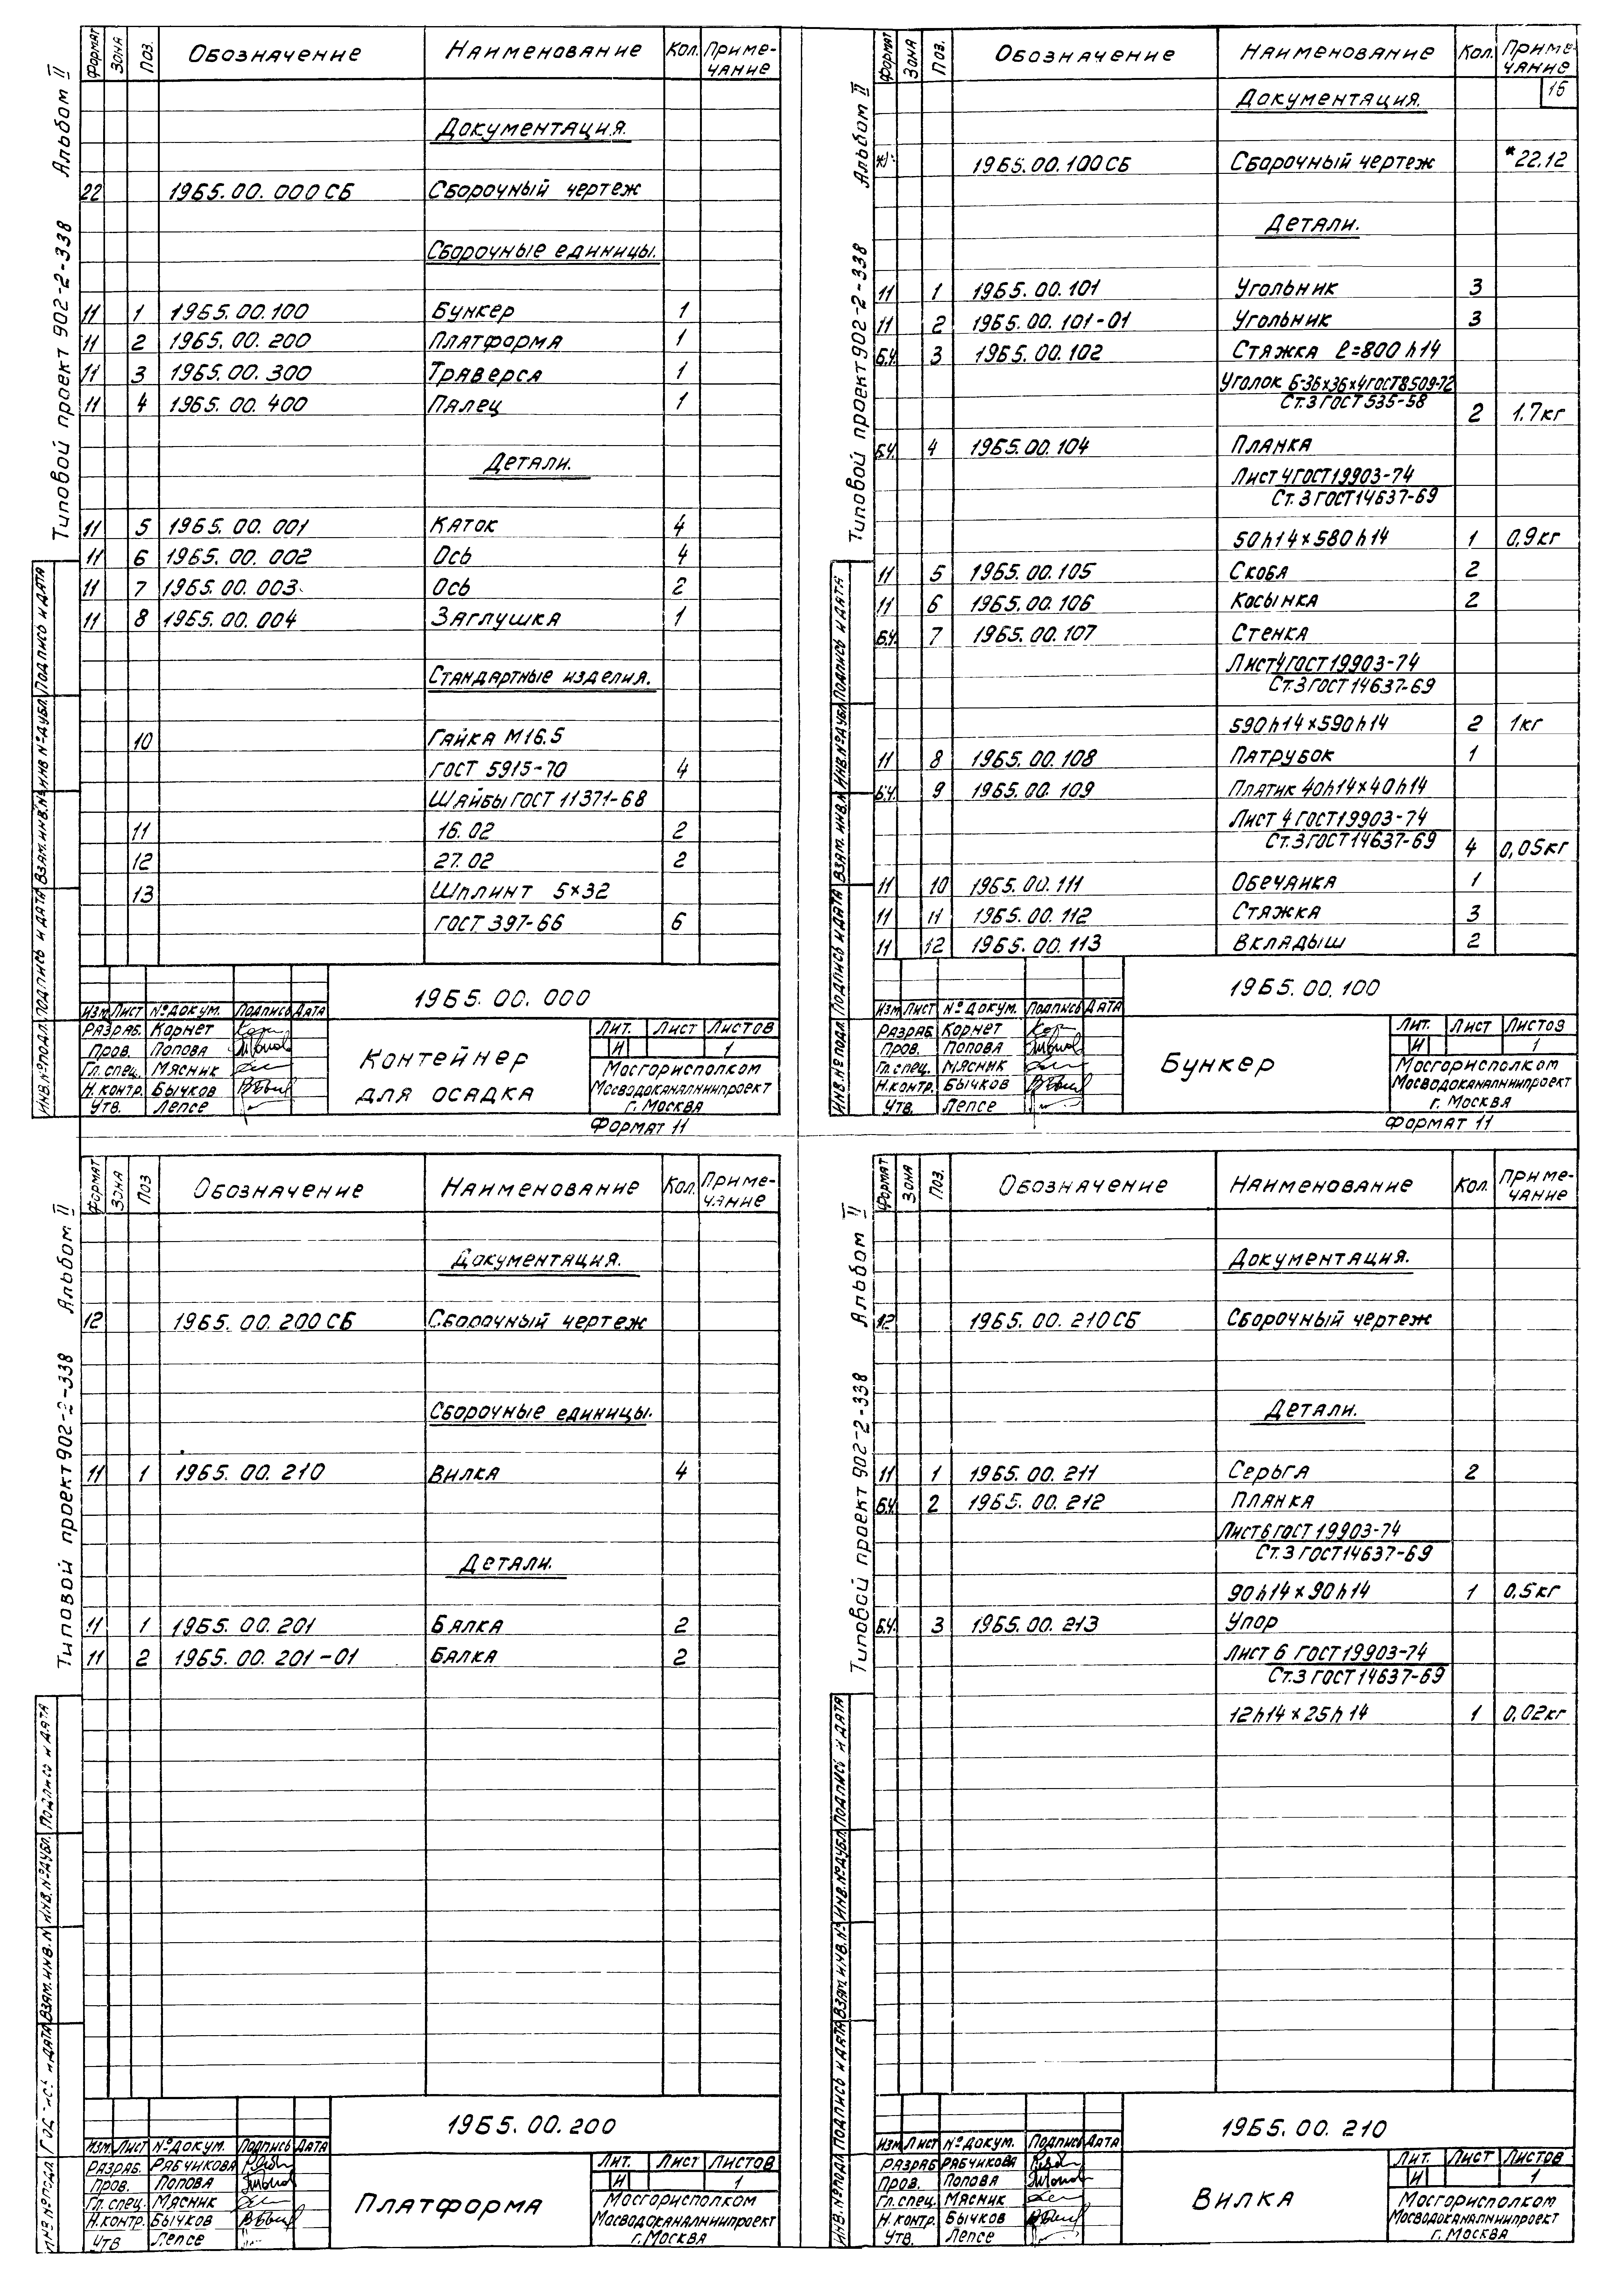 Типовой проект 902-2-338 Альбом II
Формат Зона Поз. Обозначение Наименование Кол. Приме-
чание
Документация.
22 19Б5.00.000 СБ Сборочный чертеж
Сборочные единицы.
11 1 19Б5.00.100 Бункер 1
11 2 19Б5.00.200 Платформа 1
11 3 19Б5.00.300 Траверса 1
11 4 19Б5.00.400 Палец 1
Детали.
11 5 19Б5.00.001 Каток 4
11 6 19Б5.00.002 Ось 4
11 7 19Б5.00.003 Ось 2
11 8 19Б5.00.004 Заглушка 1
Стандартные изделия.
10 Гайка М16.5
ГОСТ 5915-70 4
Шайбы ГОСТ 11371-68
11 16.02 2
12 27.02 2
13 Шплинт 5×32
ГОСТ 397-66 6
Инв.№подл. Подпись и дата Взам.инв.№ Инв №дубл. Подпись и дата
19Б5.00.000
Изм Лист №докум. Подпись Дата
Разраб. Корнет
Пров. Попова
Гл.спец. Мясник
Н.контр. Бычков
Утв. Лепсе
Контейнер
для осадка
Лит. Лист Листов
И 1
Мосгорисполком
Мосводоканалниипроект
г. Москва
Формат 11
Типовой проект 902-2-338 Альбом II
Формат Зона Поз. Обозначение Наименование Кол. Приме-
чание
15
Документация.
*) 19Б5.00.100 СБ Сборочный чертеж *22.12
Детали.
11 1 19Б5.00.101 Угольник 3
11 2 19Б5.00.101-01 Угольник 3
Б.Ч. 3 19Б5.00.102 Стяжка ℓ=800 h14
Уголок Б-36×36×4 ГОСТ 8509-72
Ст.3 ГОСТ 535-58
2 1.7кг
Б.Ч. 4 19Б5.00.104 Планка
Лист 4 ГОСТ 19903-74
Ст.3 ГОСТ 14637-69
50h14×580h14 1 0,9кг
11 5 19Б5.00.105 Скоба 2
11 6 19Б5.00.106 Косынка 2
Б.Ч. 7 19Б5.00.107 Стенка
Лист 4 ГОСТ 19903-74
Ст.3 ГОСТ 14637-69
590h14×590h14 2 1кг
11 8 19Б5.00.108 Патрубок 1
Б.Ч. 9 19Б5.00.109 Платик 40h14×40h14
Лист 4 ГОСТ 19903-74
Ст.3 ГОСТ 14637-69 4 0,05кг
11 10 19Б5.00.111 Обечаика 1
11 11 19Б5.00.112 Стяжка 3
11 12 19Б5.00.113 Вкладыш 2
Инв.№подл. Подпись и дата Взам. инв.№ Инв.№дубл. Подпись и дата
19Б5.00.100
Изм Лист №докум. Подпись Дата
Разраб. Корнет
Пров. Попова
Гл.спец. Мясник
Н.контр. Бычков
Утв. Лепсе
Бункер
Лит. Лист Листов
И 1
Мосгорисполком
Мосводоканалниипроект
г. Москва
Формат 11
Типовой проект 902-2-338 Альбом II
Формат Зона Поз Обозначение Наименование Кол. Приме-
чание
Документация.
12 19Б5.00.200 СБ Сборочный чертеж
Сборочные единицы.
11 1 19Б5.00.210 Вилка 4
Детали.
11 1 19Б5.00.201 Балка 2
11 2 19Б5.00.201-01 Балка 2
Взам.инв.№ Инв.№дубл. Подпись и дата
19Б5.00.200
Изм. Лист №докум. Подпись Дата
Разраб. Рябчикова
Пров. Попова
Гл.спец. Мясник
Н.контр. Бычков
Утв Лепсе
Платформа
Лит. Лист Листов
И 1
Мосгорисполком
Мосводоканалниипроект
г. Москва
Типовой проект 902-2-338 Альбом II
Формат Зона Поз. Обозначение Наименование Кол. Приме-
чание
Документация.
12 19Б5.00.210 СБ Сборочный чертеж
Детали.
11 1 19Б5.00.211 Серьга 2
Б.Ч. 2 19Б5.00.212 Планка
Лист 6 ГОСТ 19903-74
Ст.3 ГОСТ 14637-69
90h14×90h14 1 0,5кг
Б.Ч. 3 19Б5.00.213 Упор
Лист 6 ГОСТ 19903-74
Ст.3 ГОСТ 14637-69
12h14×25h14 1 0,02кг
Инв.№подл Подпись и дата Взам. инв.№ Инв.№дубл. Подпись и дата
19Б5.00.210
Изм Лист №докум. Подпись Дата
Разраб Рябчикова
Пров. Попова
Гл.спец. Мясник
Н.контр. Бычков
Утв. Лепсе
Вилка
Лит. Лист Листов
И 1
Мосгорисполком
Мосводоканалниипроект
г. Москва